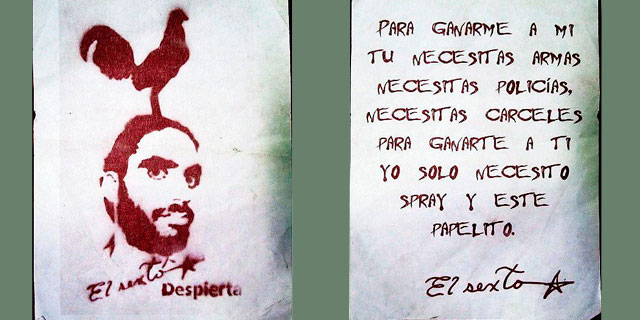 El sexto
Despierta
PARA GANARME A MI
TU NECESITAS ARMAS
NECESITAS POLICÍAS,
NECESITAS CARCELES
PARA GANARTE A TI
YO SOLO NECESITO
SPRAY Y ESTE
PAPELITO.
El sexto